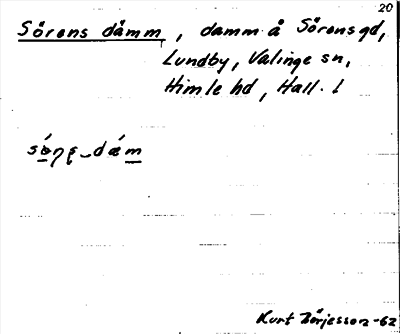 20
Sörens dämm, damm å Sörensgd,
Lundby, Valinge sn,
Himle hd, Hall. l
Kurt Börjesson -62